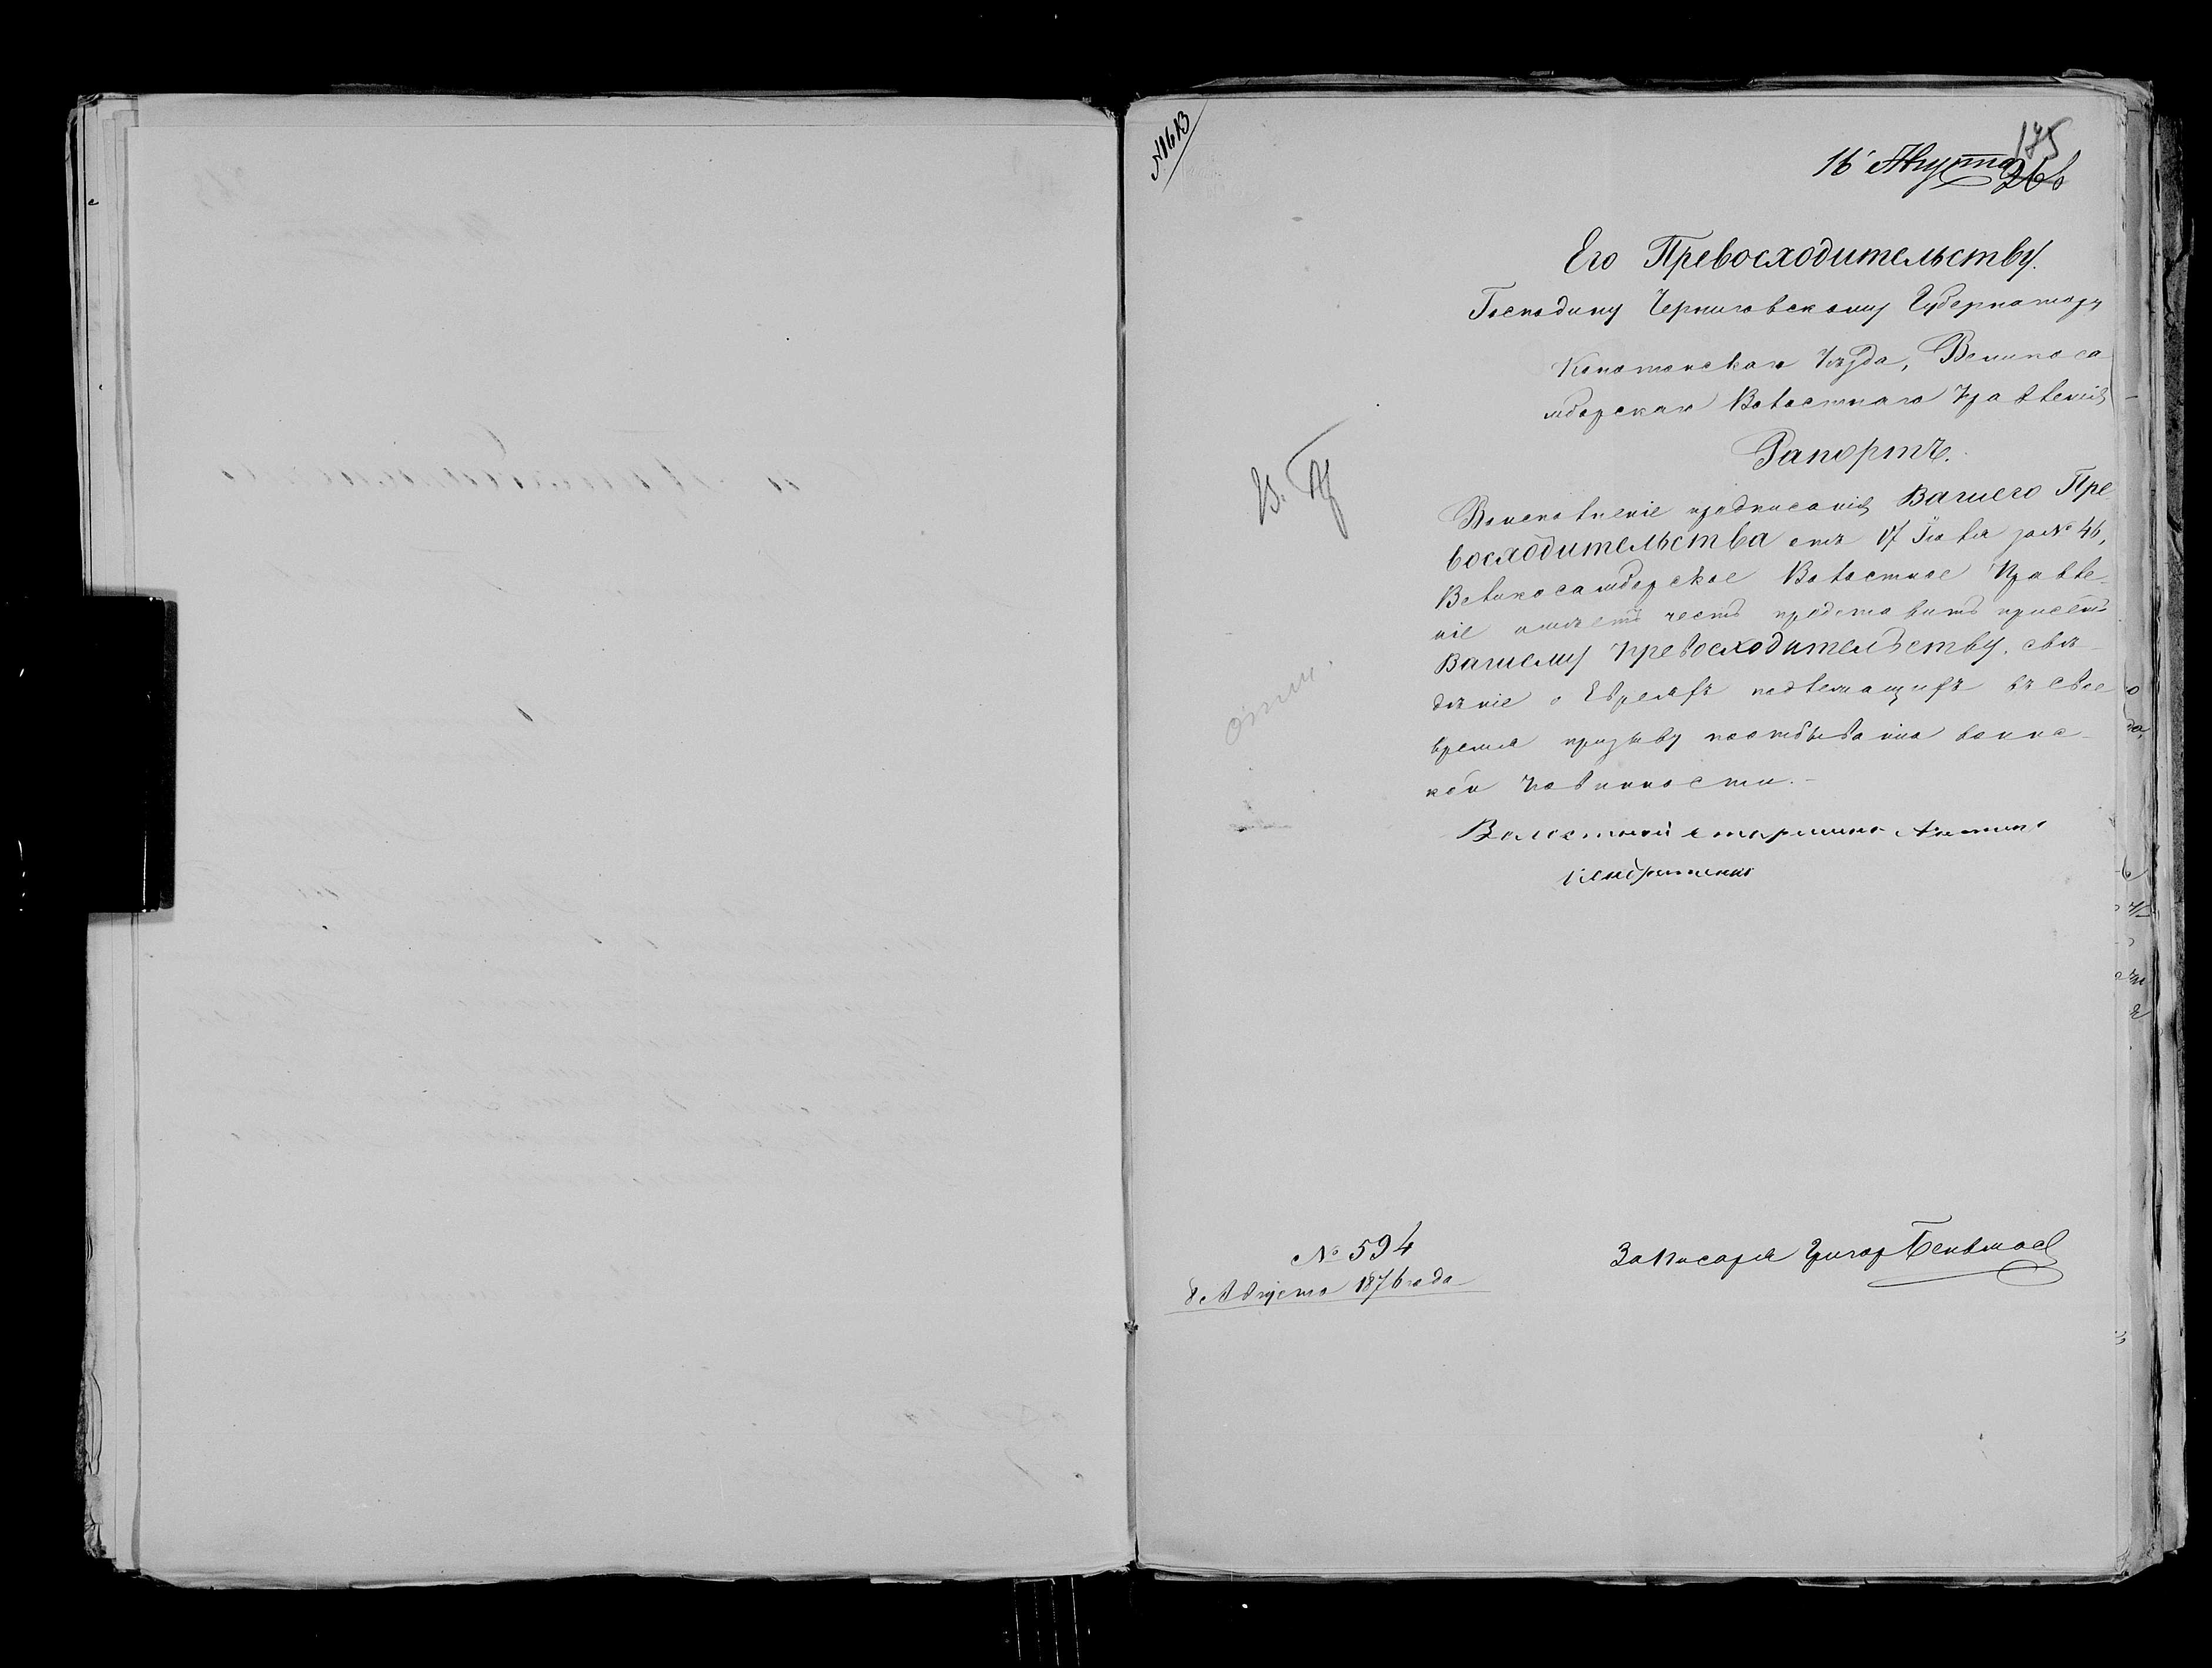 175
16 Августа
266
Его Превосходительству.
Господину Черниговскому Губернатору
Конотопскаго Уѣзда, Великоса
мборскаго Волостного Правленія
Рапортъ.
Воисполненіе предписанія Вашего Пре
восходительства отъ 17 Іюля за № 46,
Великосамборское Волостное Правле-
ніе имѣетъ честь представить присемъ
Вашему Превосходительству, свѣ-
дѣніе о Евреяхъ подлежащихъ въ свое
время призыву поотбыванію воинс-
кой повинности.-
Волостной старшина Антинъ
Кондратенко
№ 594
8 Августа 1876 года
За Писаря Григор